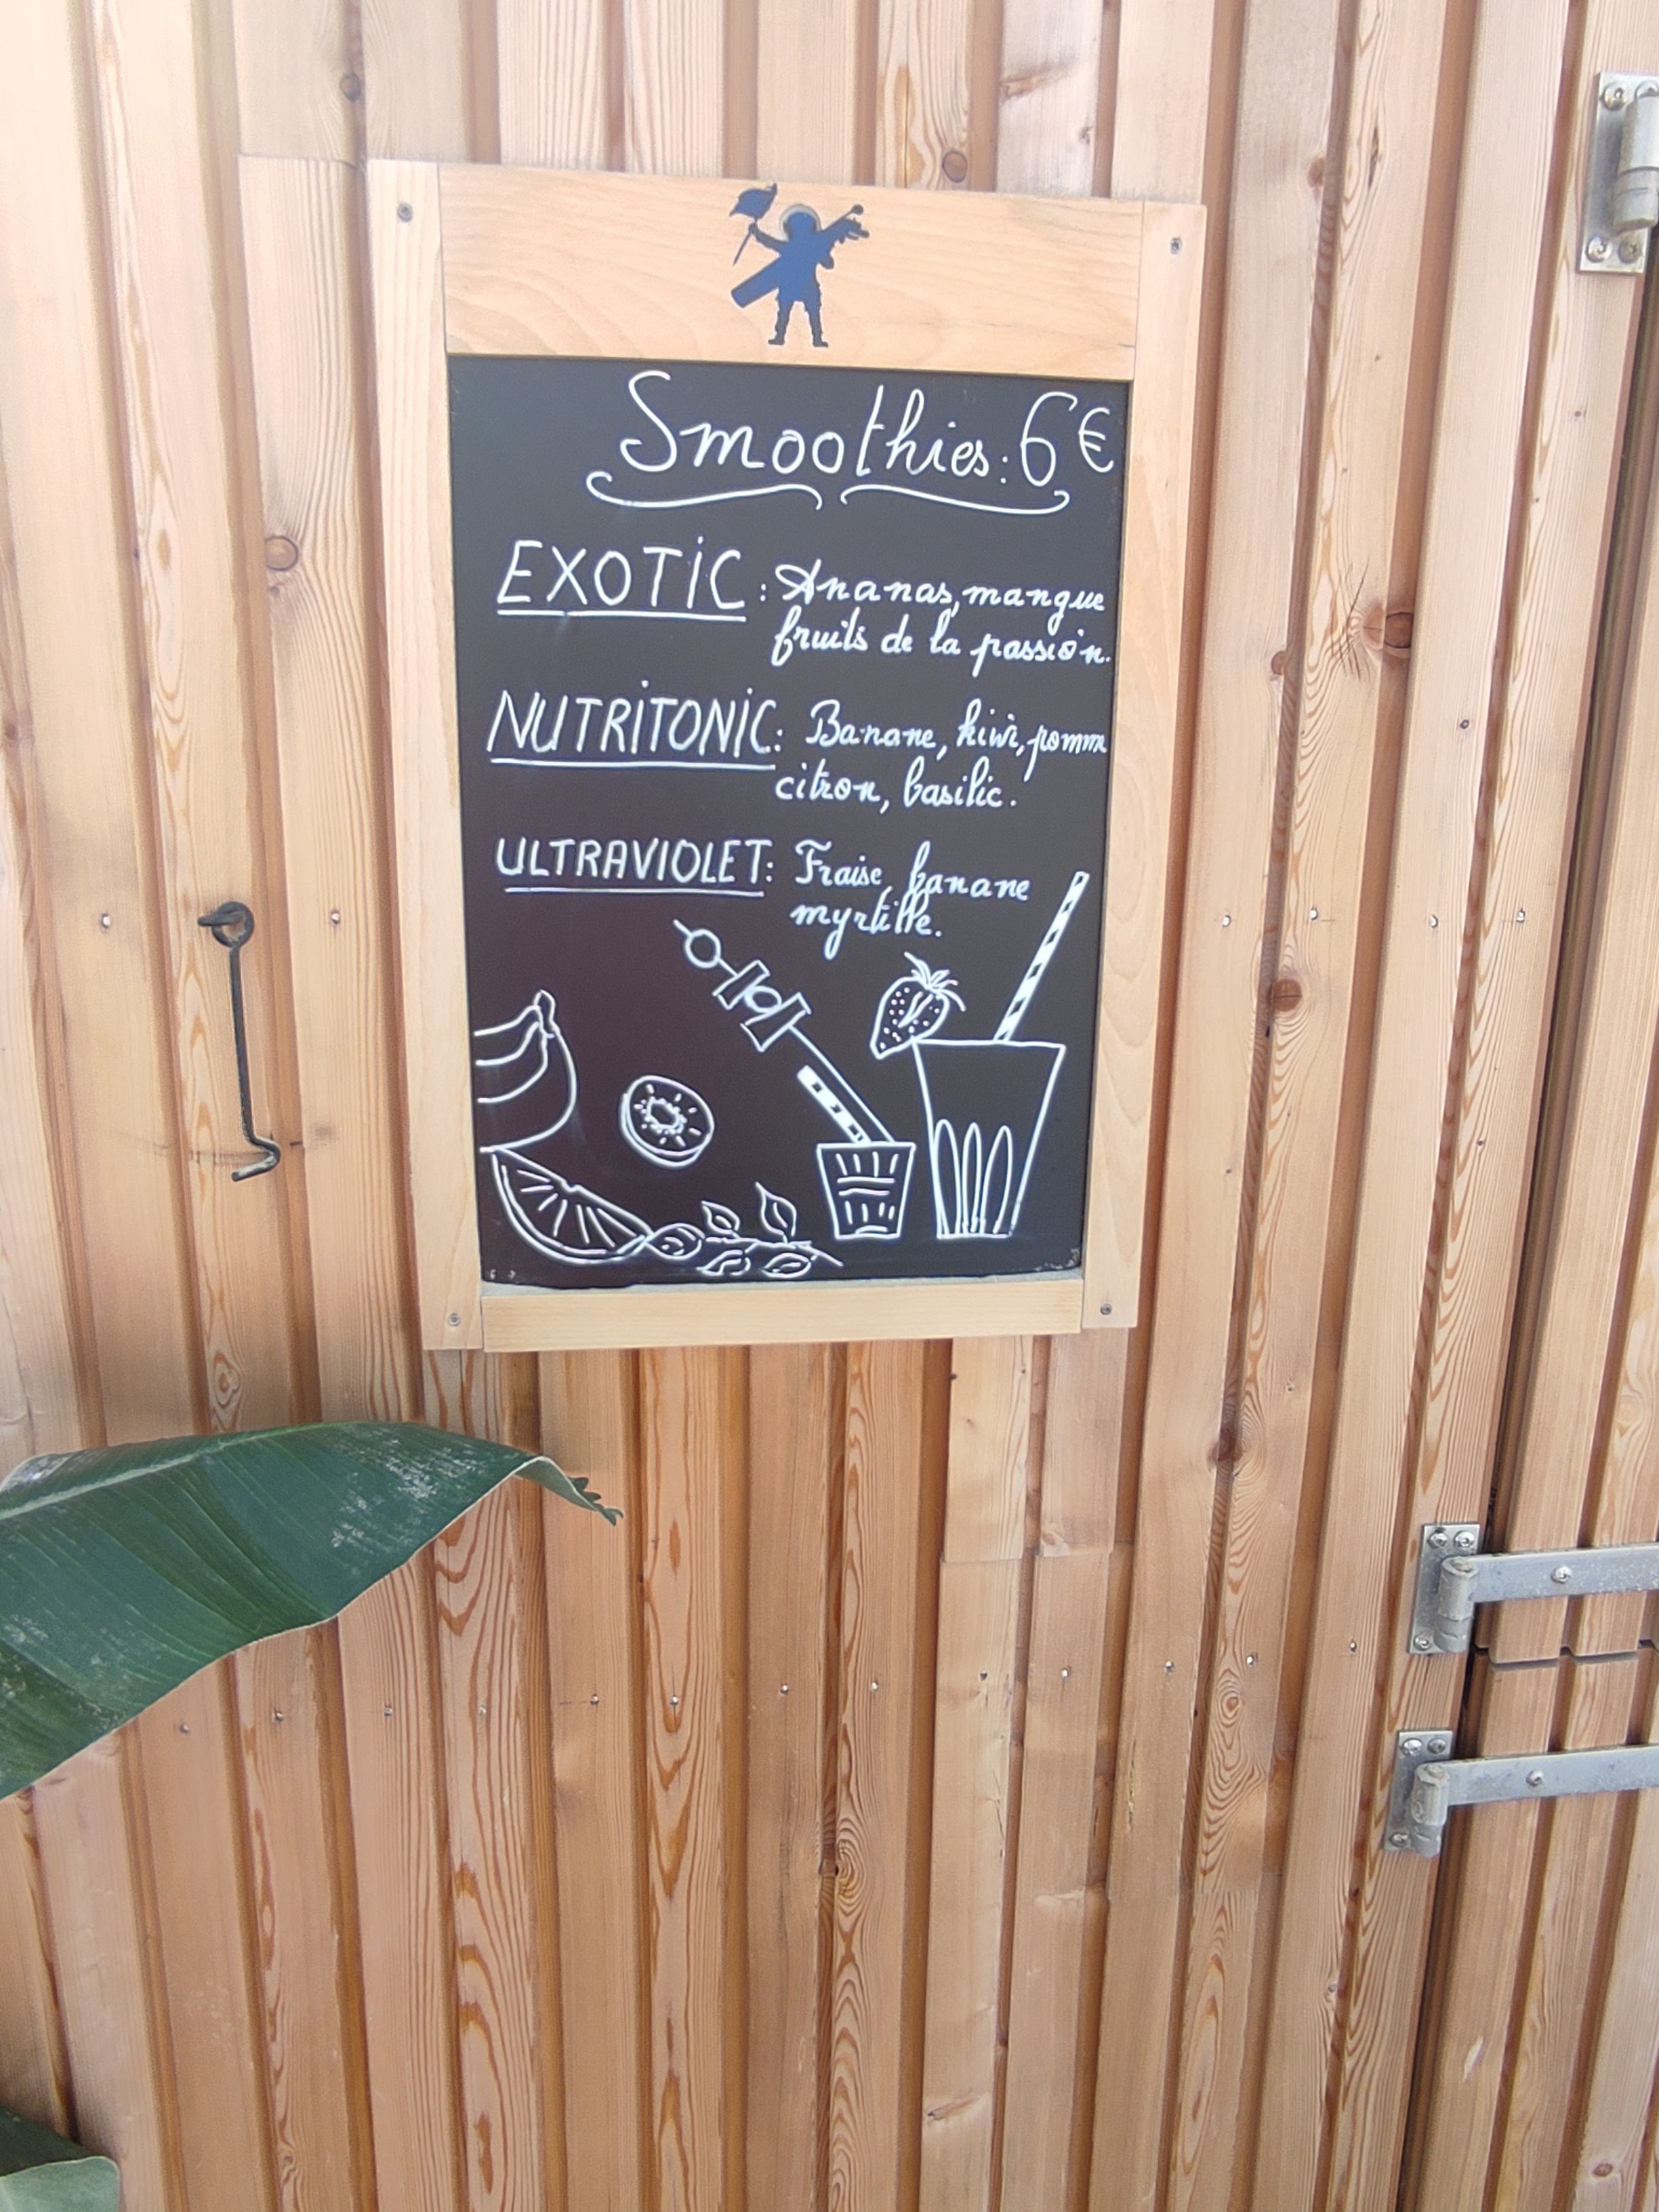 Smoothies: 6€
EXOTIC: Ananas, mangue
fruits de la passion.
NUTRITONIC: Banane, kiwi, pomme
citron, basilic.
ULTRAVIOLET: Fraise, banane
myrtille.